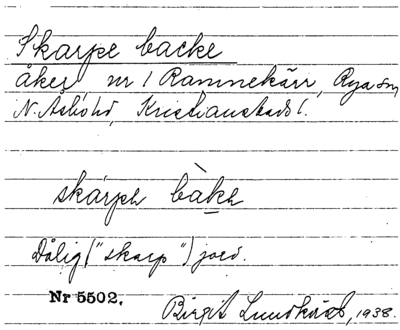 Skarpe backe
åker, nr 1 Ramnekärr, Rya sn,
N. Åsbo hd, Kristianstads l.
skárph bàkh
Dålig ("skarp") jord.
Nr 5502. Birgit 1938.